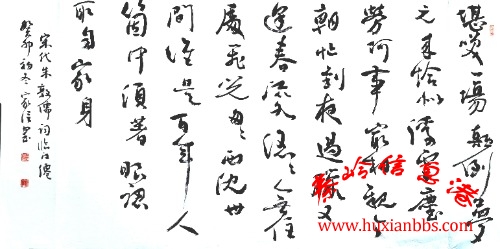 堪笑一場顛倒夢
元来恰似浮雲塵
勞何事最相親今
朝忙到夜過臘又
逢春流水滔滔無住
處飛光忽忽西沈世
間誰是百年人
箇中須著眼認
取自家身
宋代朱敦儒詞临江仙
癸卯初冬家信書
信息港
www.huxianbbs.com